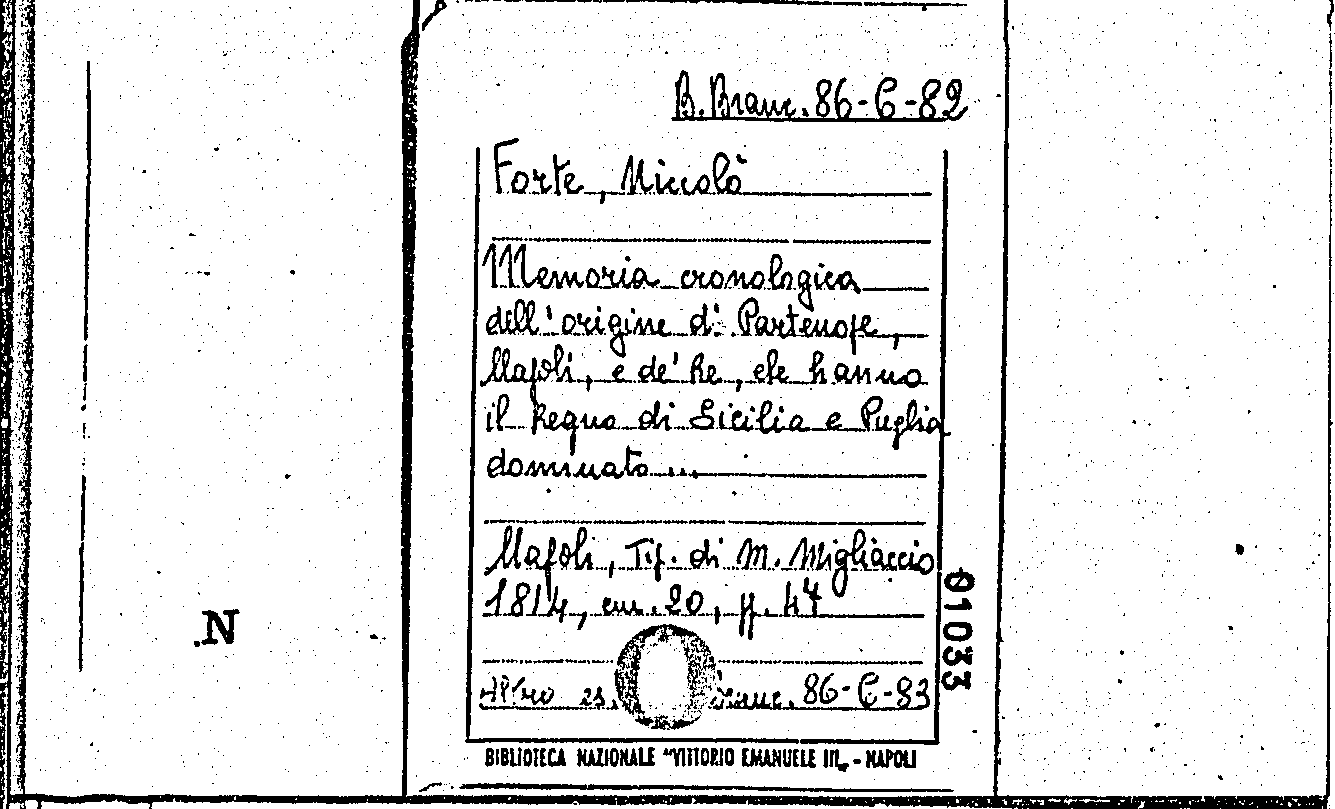 B. Branc. 86-C-82
Forte, Niccolò
Memoria cronologica
dell'origine di Partenope,
Napoli, e de' Re, che hanno
il Regno di Sicilia e Puglia
dominato ...
Napoli, Tip. di M. Migliaccio
1814, cm. 20, pp. 47
Altro es. Branc. 86-C-83
01033
N
BIBLIOTECA NAZIONALE "VITTORIO EMANUELE III„ - NAPOLI